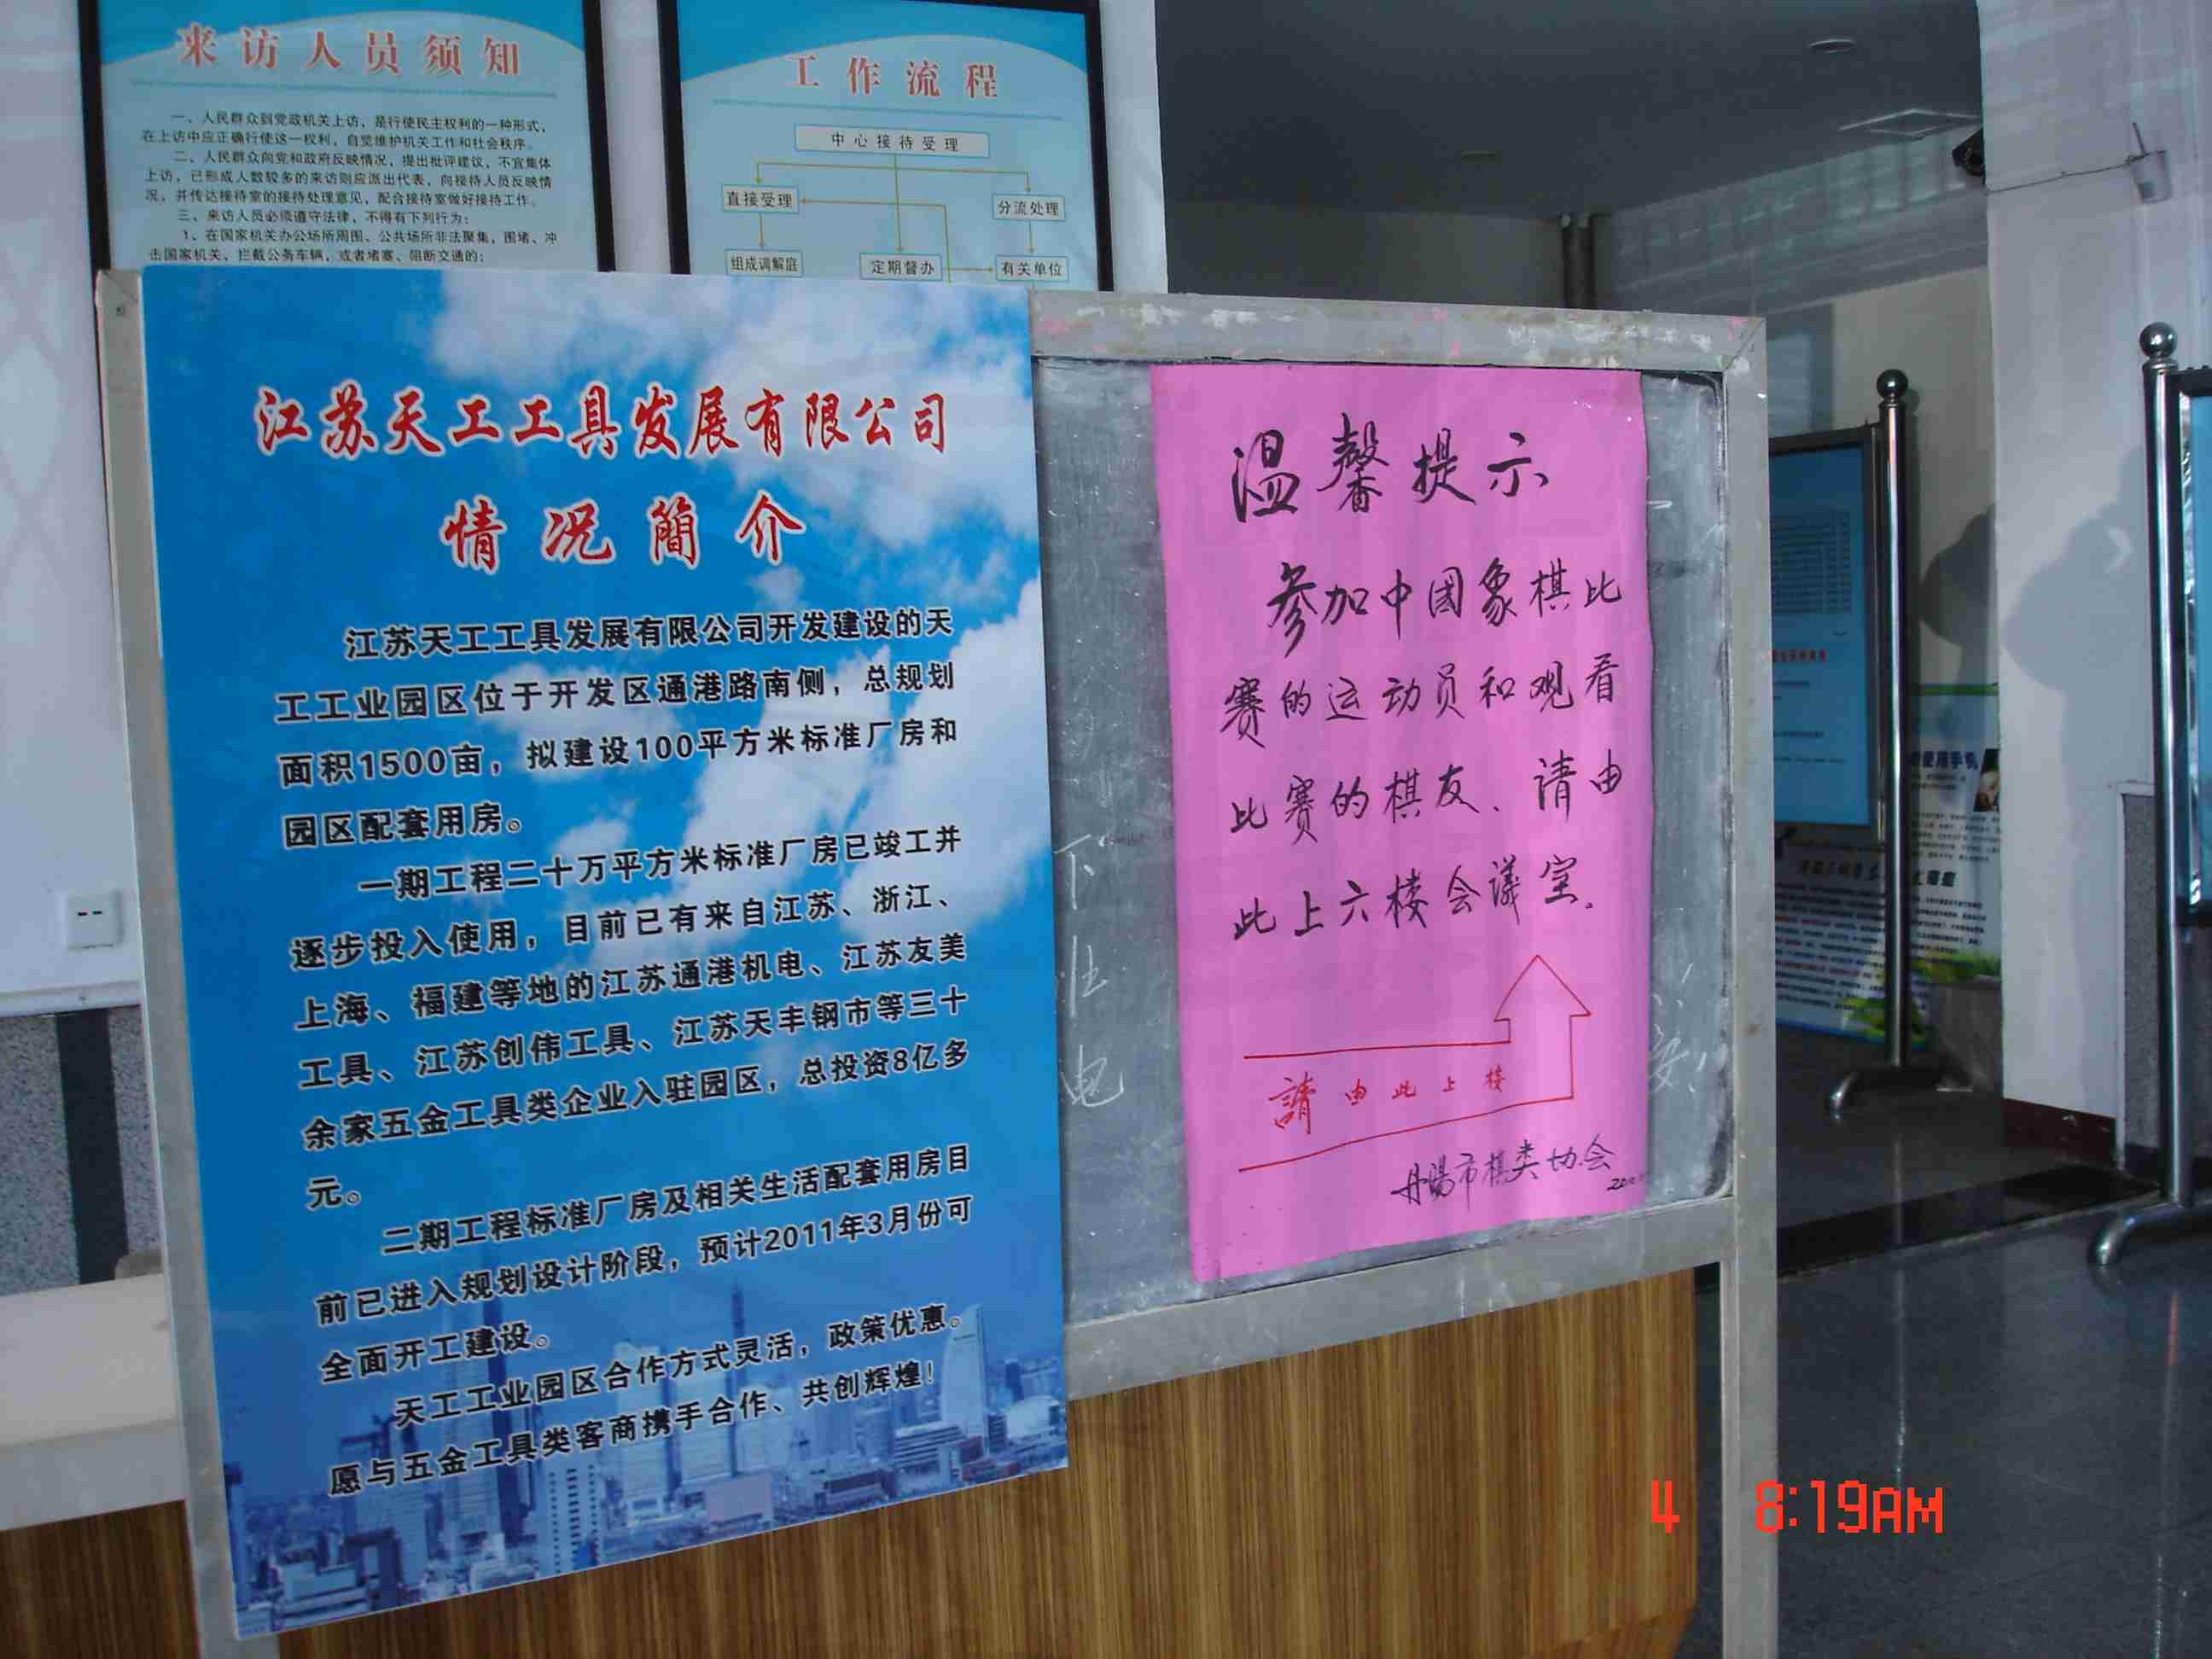 来访人员须知
一、人民群众到党政机关上访，是行使民主权利的一种形式，
在上访中应正确行使这一权利，自觉维护机关工作和社会秩序。
二、人民群众向党和政府反映情况，提出批评建议，不宜集体
上访，已形成人数较多的来访则应派出代表，向接待人员反映情
况，并传达接待室的接待处理意见，配合接待室做好接待工作。
三、来访人员必须遵守法律，不得有下列行为：
1、在国家机关办公场所周围、公共场所非法聚集，围堵、冲
击国家机关，拦截公务车辆，或者堵塞、阻断交通的；
工作流程
中心接待受理
直接受理
分流处理
组成调解庭
定期督办
有关单位
江苏天工工具发展有限公司
情况簡介
江苏天工工具发展有限公司开发建设的天
工工业园区位于开发区通港路南侧，总规划
面积1500亩，拟建设100平方米标准厂房和
园区配套用房。
一期工程二十万平方米标准厂房已竣工并
逐步投入使用，目前已有来自江苏、浙江、
上海、福建等地的江苏通港机电、江苏友美
工具、江苏创伟工具、江苏天丰钢市等三十
余家五金工具类企业入驻园区，总投资8亿多
元。
二期工程标准厂房及相关生活配套用房目
前已进入规划设计阶段，预计2011年3月份可
全面开工建设。
天工工业园区合作方式灵活，政策优惠。
愿与五金工具类客商携手合作、共创辉煌！
温馨提示
参加中国象棋比
赛的运动员和观看
比赛的棋友、请由
此上六楼会议室.
請由此上楼
丹陽市棋类协会
下
电
使用手机
4 8:19AM